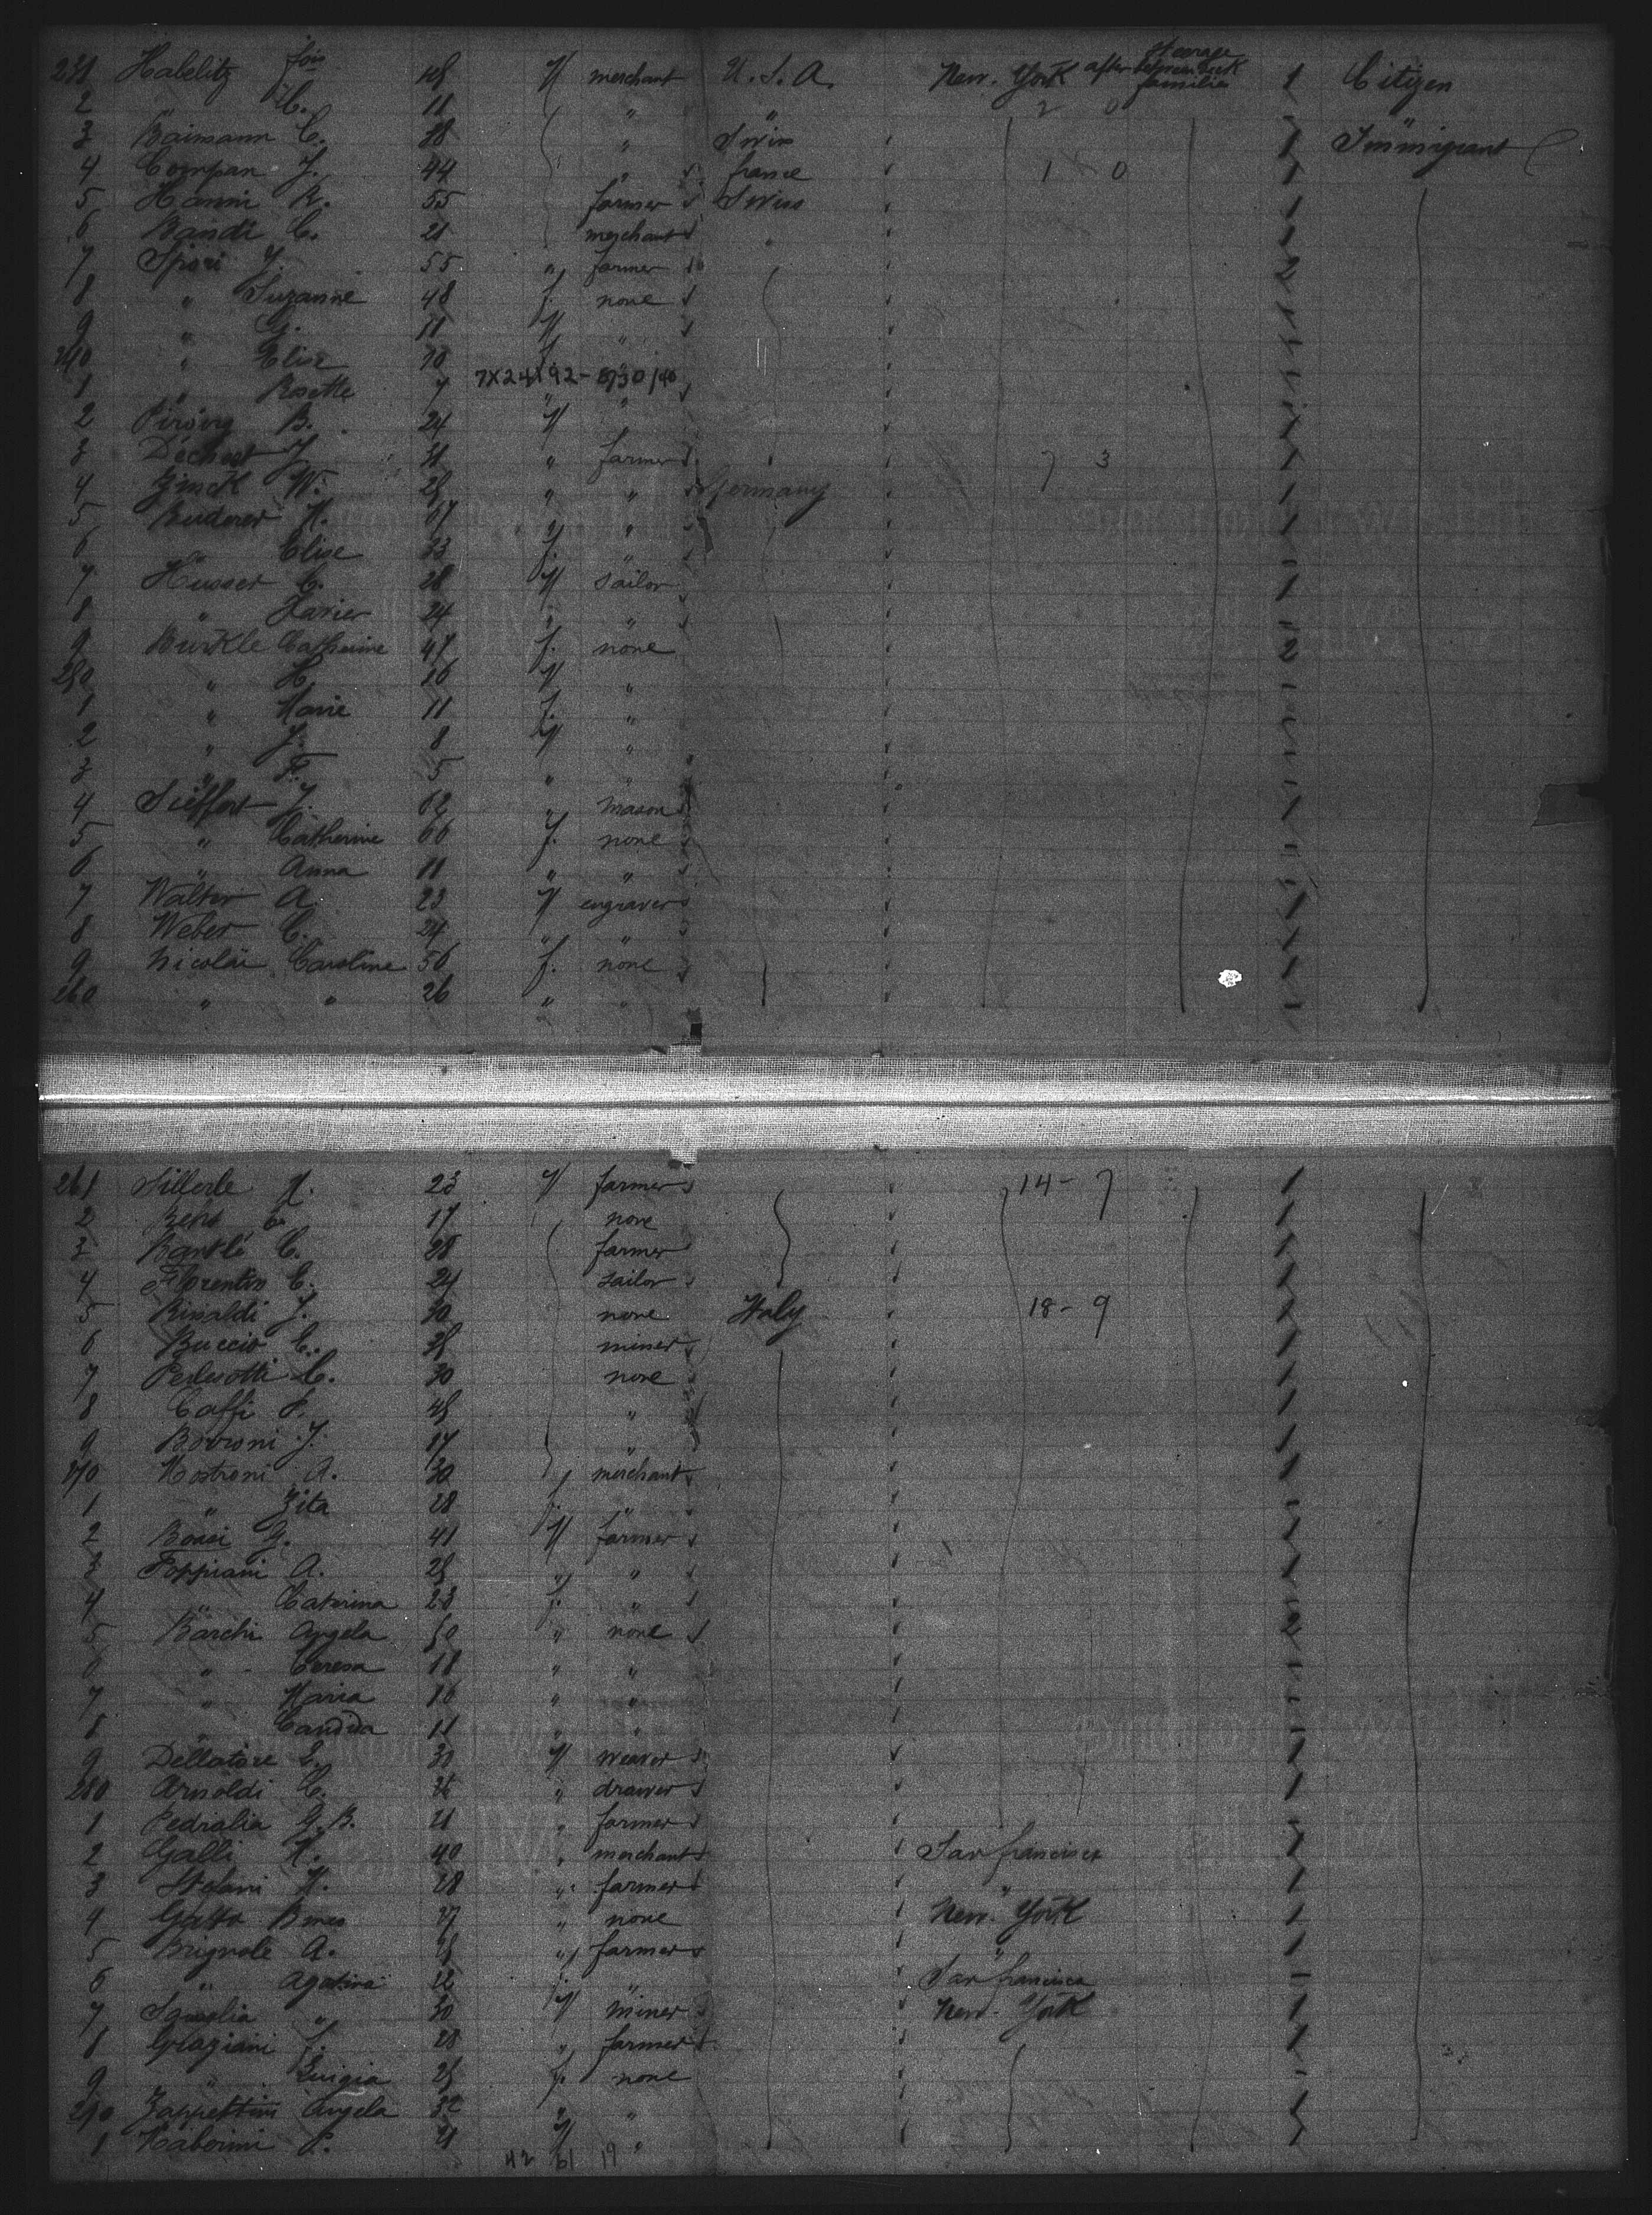 231 Habelitz Jos 48 M merchant U. S. A. New. York after steerage between deck familie 1 Citizen
2 " C. 11 " " 2 0
3 Baimann C. 38 " Swiss 1 Immigrant
4 Compan J. 44 " france 1 0 1
5 Hanni R. 55 farmer Swiss 1
6 Bandi C. 21 merchant " 1
7 Spori J. 55 " farmer 2
8 " Suzanne 48 f. none
9 " G. 11 M "
240 " Elise 10 f "
7X24X92- 6730/40
1 " Rosette 7 " "
2 B. 24 M "
3 J 31 " farmer 7 3 1
4 W. 28 " " Germany 1
5 Buderer M. 67 " " 1
6 " Elise 33 f. "
7 Husser C. 28 M sailor 1
8 " Xavier 24 " "
9 Burkle Catherine 47 f. none 2
250 " H. 26 M "
1 " Marie 11 f. "
2 " J. 8 M "
3 " F. 5 " "
4 Sieffert J. 62 " mason 1
5 " Catherine 66 f. none
6 " Anna 11 " "
7 Walter A. 23 M engraver 1
8 Weber C. 24 " " 1
9 Nicolai Caroline 56 f. none 1
260 " " 26 " "
261 Sillerle M. 23 M farmer 14- 7 1
2 17 none 1
3 C. 28 farmer 1
4 Florentin C. 24 sailor 1
5 Rinaldi J. 30 none Italy 18- 9 1
6 Buccio C. 38 miner 1
7 C. 30 none 1
8 Caffi P. 48 " 1
9 Borroni J. 17 " 1
270 A. 30 " merchant 1
1 " Zita 28 f. "
2 G. 41 M farmer 1
3 Foppiani A. 28 " " 1
4 " Caterina 23 f. "
5 Barchi Angela 50 " none 2
6 " Teresa 18 " "
7 " Maria 16 " "
8 " Candida 11 " "
9 Dellatore L. 30 M weaver 1
280 Arnoldi C. " drawer 1
1 Pedralia G. B. 21 " farmer 1
2 Galli M. 40 " merchant San francisco 1
3 Stefani M. 28 " farmer " 1
4 Gatto 27 " none New. York 1
5 Brignole A. 28 " farmer " 1
6 " Agostina 22 f. " San francisco
7 " 30 M miner New. York 1
8 Graziani J. 28 " farmer 1
9 " Luigia 28 f. none
290 Zappettini Angela 32 " " 1
1 P. 21 M " 1
42 61 19